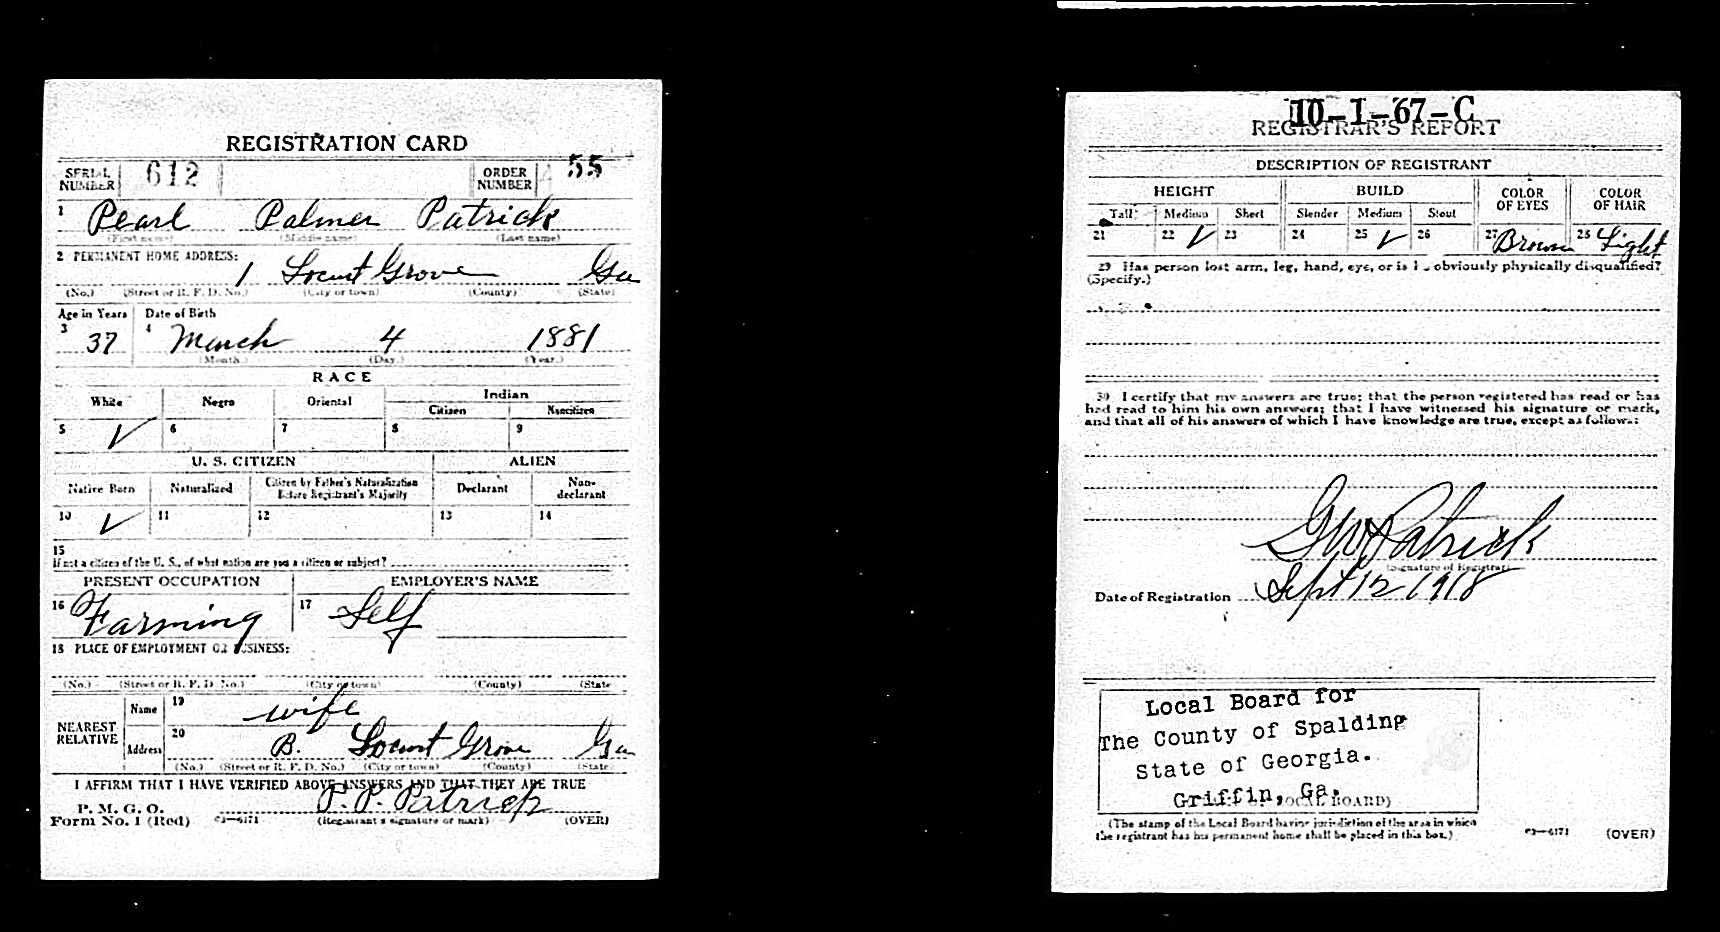 REGISTRATION CARD
SERIAL NUMBER 612 ORDER NUMBER 55
1 Pearl Palmer Patrick
(First name) (Middle name) (Last name)
2 PERMANENT HOME ADDRESS:
1 Locust Grove Ga
(No.) (Street or R. F. D. No.) (City or town) (County) (State)
Age in Years Date of Birth
3 37 4 March 4 1881
(Month.) (Day.) (Year.)
RACE
White Negro Oriental Indian
Citizen Noncitizen
5 ✓ 6 7 8 9
U. S. CITIZEN ALIEN
Native Born Naturalized Citizen by Father's Naturalization Before Registrant's Majority Declarant Non-declarant
10 ✓ 11 12 13 14
15
If not a citizen of the U. S., of what nation are you a citizen or subject?
PRESENT OCCUPATION EMPLOYER'S NAME
16 Farming 17 Self
18 PLACE OF EMPLOYMENT OR BUSINESS:
(No.) (Street or R. F. D. No.) (City or town) (County) (State
NEAREST RELATIVE Name 19 wife
Address 20 Locust Grove Ga
(No.) (Street or R. F. D. No.) (City or town) (County) (State
I AFFIRM THAT I HAVE VERIFIED ABOVE ANSWERS AND THAT THEY ARE TRUE
P. M. G. O.
Form No. 1 (Red) 03—6171 P. P. Patrick
(Registrant's signature or mark) (OVER)
10-1-67-C
REGISTRAR'S REPORT
DESCRIPTION OF REGISTRANT
HEIGHT BUILD COLOR OF EYES COLOR OF HAIR
Tall Medium Short Slender Medium Stout
21 22 ✓ 23 24 25 ✓ 26 27 Brown 28 Light
29 Has person lost arm, leg, hand, eye, or is he obviously physically disqualified?
(Specify.)
30 I certify that my answers are true; that the person registered has read or has
had read to him his own answers; that I have witnessed his signature or mark,
and that all of his answers of which I have knowledge are true, except as follows:
GW Patrick
(Signature of Registrar)
Date of Registration Sept 12 1918
Local Board for
The County of Spalding
State of Georgia.
Griffin, Ga.
LOCAL BOARD)
(The stamp of the Local Board having jurisdiction of the area in which
the registrant has his permanent home shall be placed in this box.)
03—6171 (OVER)